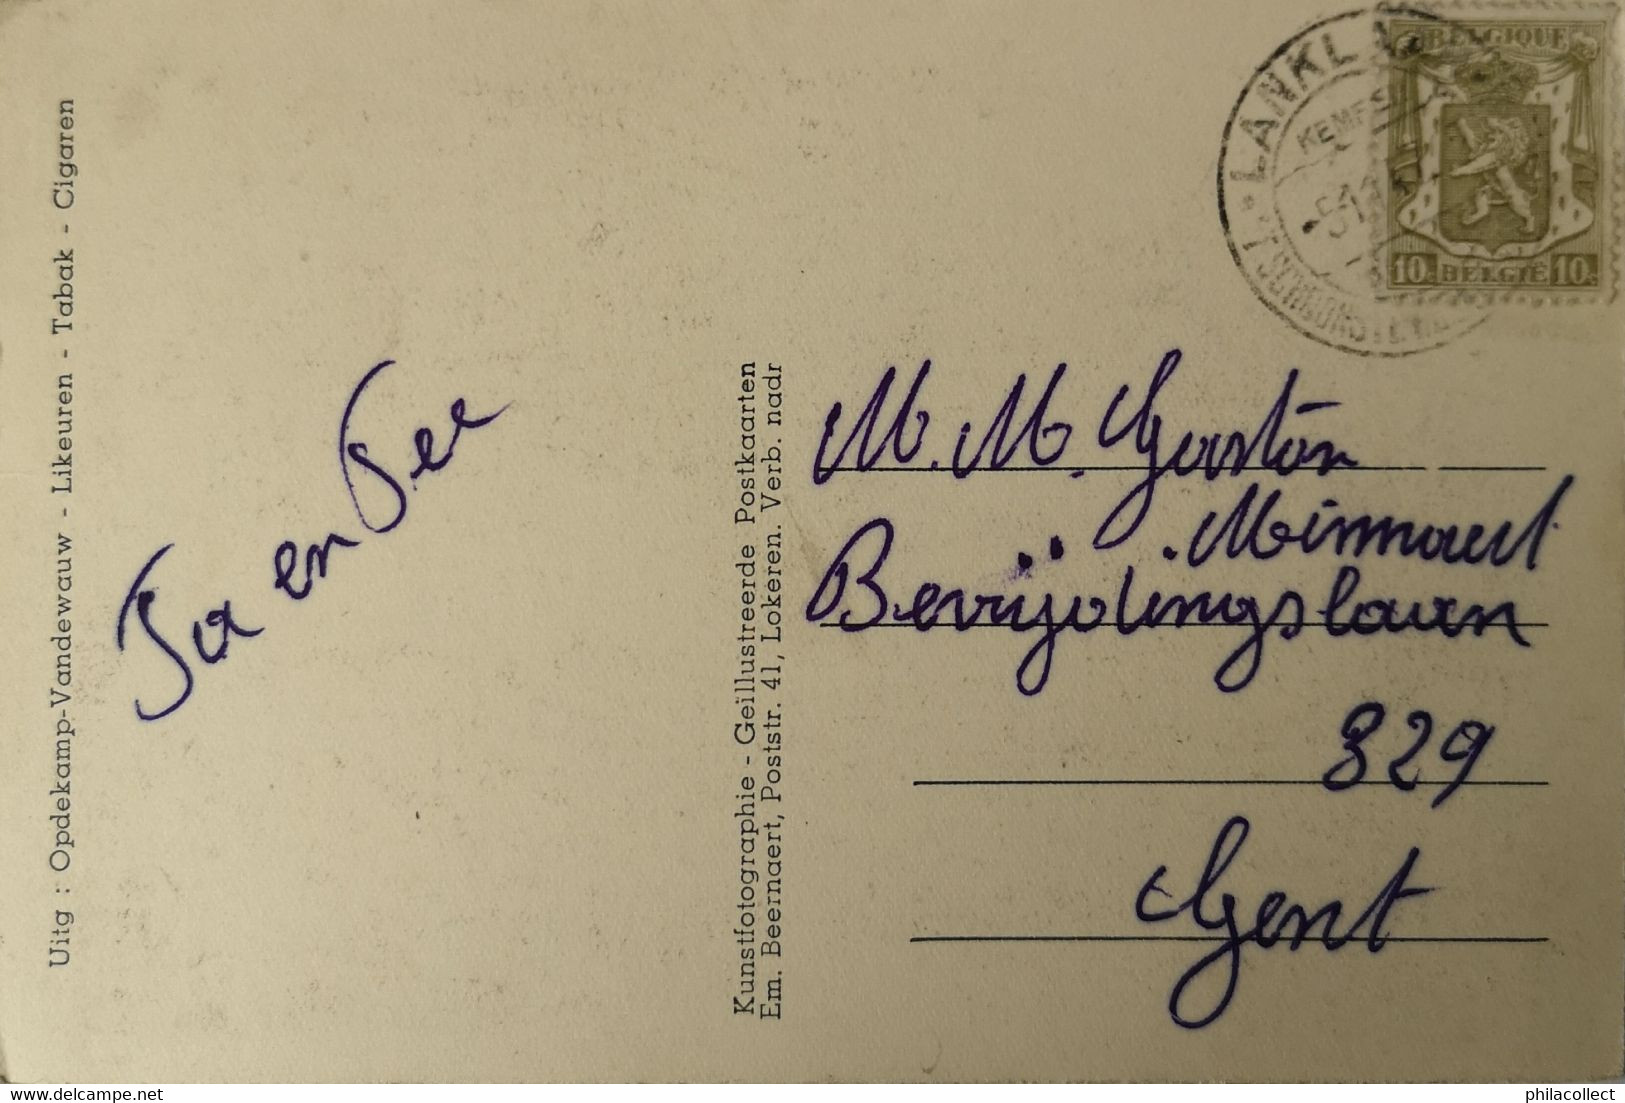 Uitg : Opdekamp-Vandewauw - Likeuren - Tabak - Cigaren
en
Kunstfotographie - Geïllustreerde Postkaarten
Em. Beernaert, Poststr. 41, Lokeren. Verb. nadr
LANKL
BELGIQUE
10c BELGIË 10c
M. M. Gaston
Minnaert
Bevrijdingslaan
329
Gent
delcampe.net
philacollect